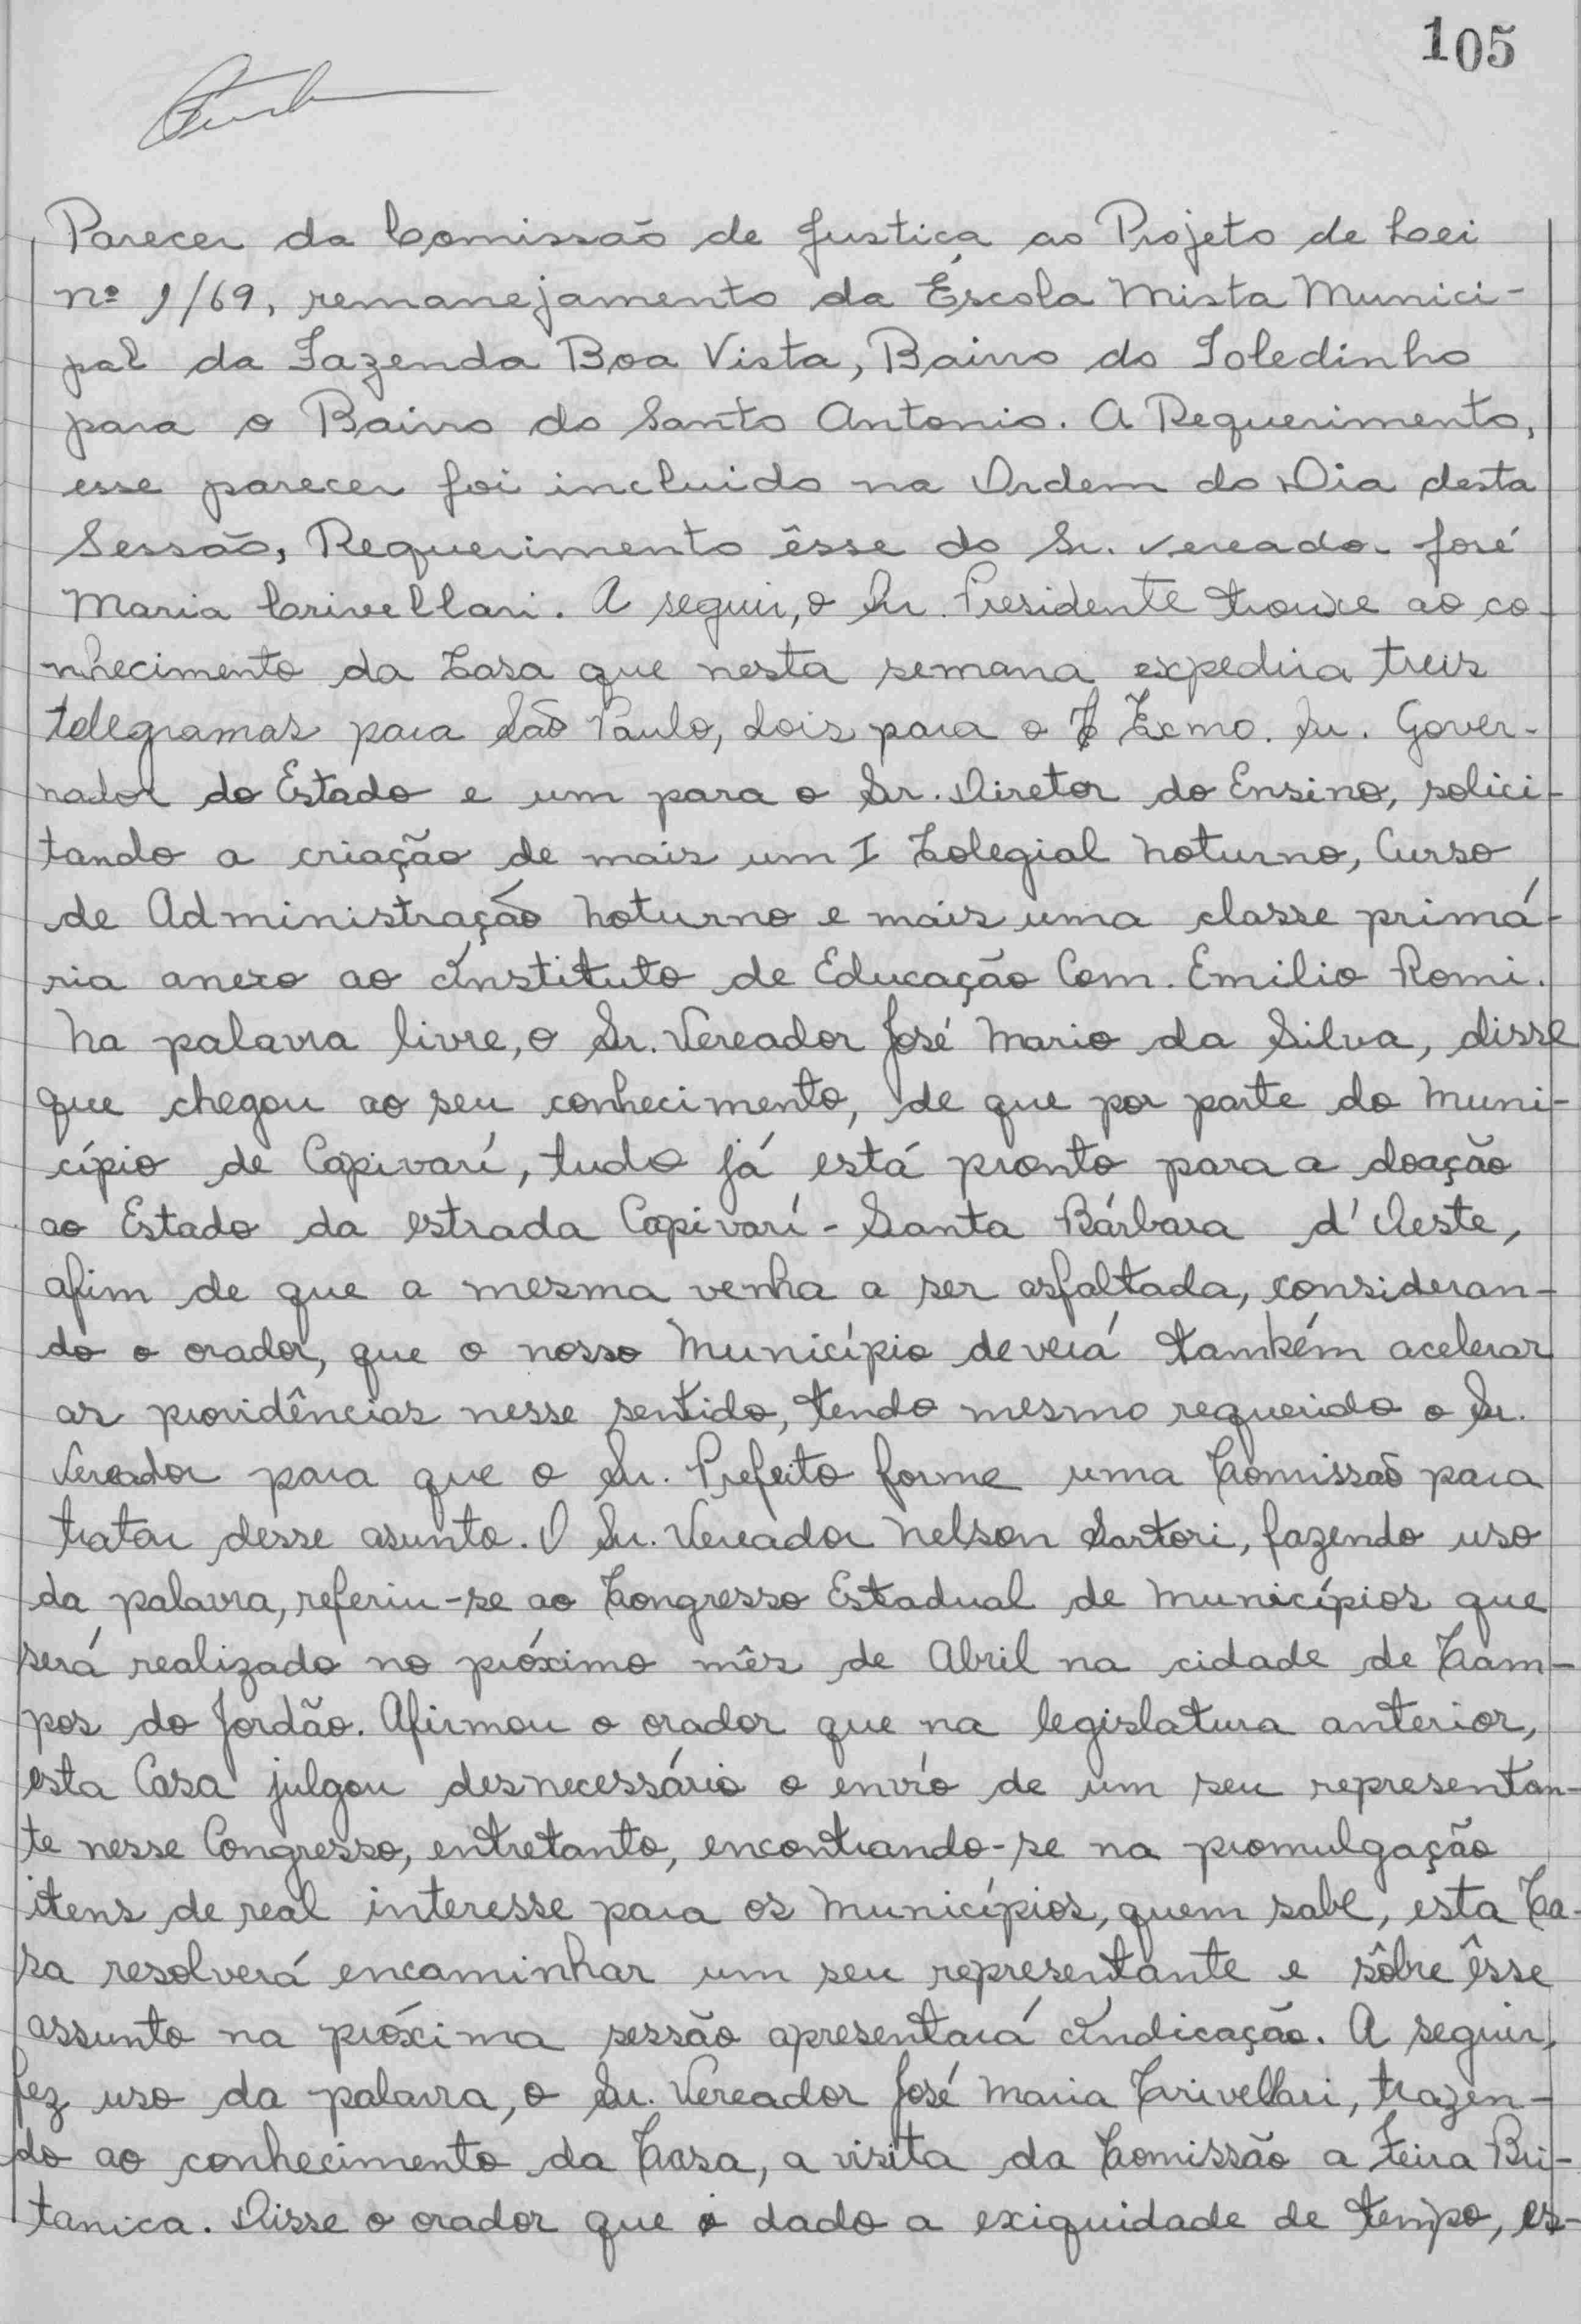 105
Parecer da Comissão de Justiça ao Projeto de Lei
nº 1/69, remanejamento da Éscola Mista Munici-
pal da Fazenda Boa Vista, Bairro do Toledinho
para o Bairro do Santo Antonio. A Requerimento,
esse parecer foi incluido na Ordem do Dia desta
Sessão, Requerimento êsse do Sr. Vereador José
Maria Crivellari. A seguir, o Sr. Presidente trouxe ao co-
nhecimento da Casa que nesta semana expedira treis
telegramas para São Paulo, dois para o Exmo. Sr. Gover-
nador do Estado e um para o Sr. Diretor do Ensino, solici-
tando a criação de mais um I Colegial Noturno, Curso
de Administração Noturno e mais uma classe primá-
ria anexo ao Instituto de Educação Com. Emilio Romi.
Na palavra livre, o Sr. Vereador José Mario da Silva, disse
que chegou ao seu conhecimento, de que por parte do Muni-
cípio de Capivarí, tudo já está pronto para a doação
ao Estado da estrada Capivarí - Santa Bárbara d'Oeste,
afim de que a mesma venha a ser asfaltada, consideran-
do o orador, que o nosso Município deverá também acelerar
as providências nesse sentido, tendo mesmo requerido o Sr.
Vereador para que o Sr. Prefeito forme uma Comissão para
tratar desse asunto. O Sr. Vereador Nelson Sartori, fazendo uso
da palavra, referiu-se ao Congresso Estadual de Municípios que
será realizado no próximo mês de Abril na cidade de Cam-
pos do Jordão. Afirmou o orador que na legislatura anterior,
esta Casa julgou desnecessário o envío de um seu representan-
te nesse Congresso, entretanto, encontrando-se na promulgação
itens de real interesse para os Municípios, quem sabe, esta Ca-
sa resolverá encaminhar um seu representante e sôbre êsse
assunto na próxima sessão apresentará Indicação. A seguir,
fez uso da palavra, o Sr. Vereador José Maria Crivellari, trazen-
do ao conhecimento da Casa, a visita da Comissão a Feira Bri-
tanica. Disse o orador que dado a exiguidade de tempo, es-